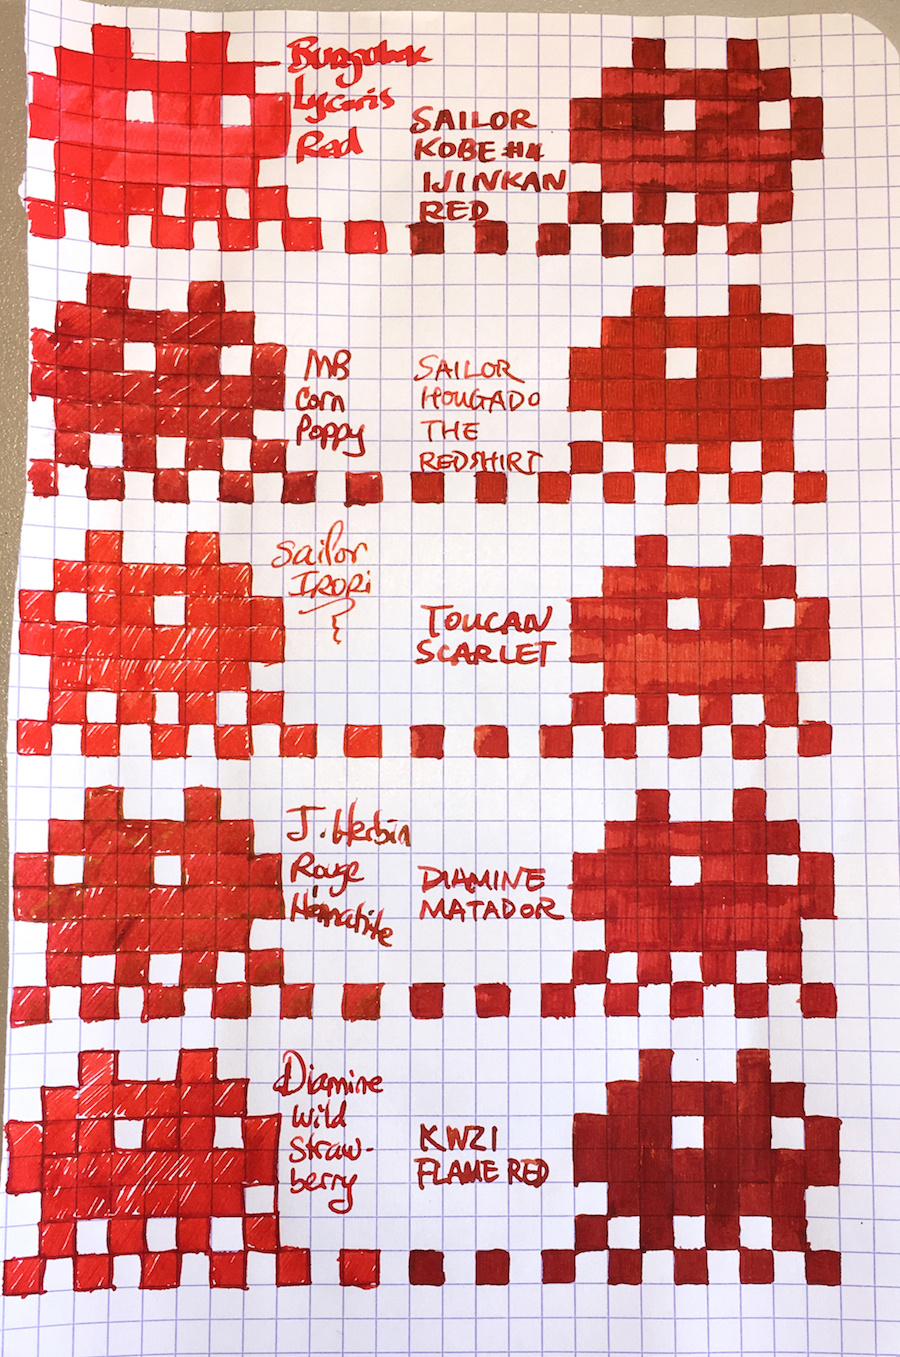 Bungubox
Lycoris
Red
SAILOR
KOBE #4
IJINKAN
RED
MB
Corn
Poppy
SAILOR
HOUGADO
THE
REDSHIRT
Sailor
IRORI
TOUCAN
SCARLET
J. Herbin
Rouge
Hematite
DIAMINE
MATADOR
Diamine
Wild
Straw-
berry
KWZI
FLAME RED